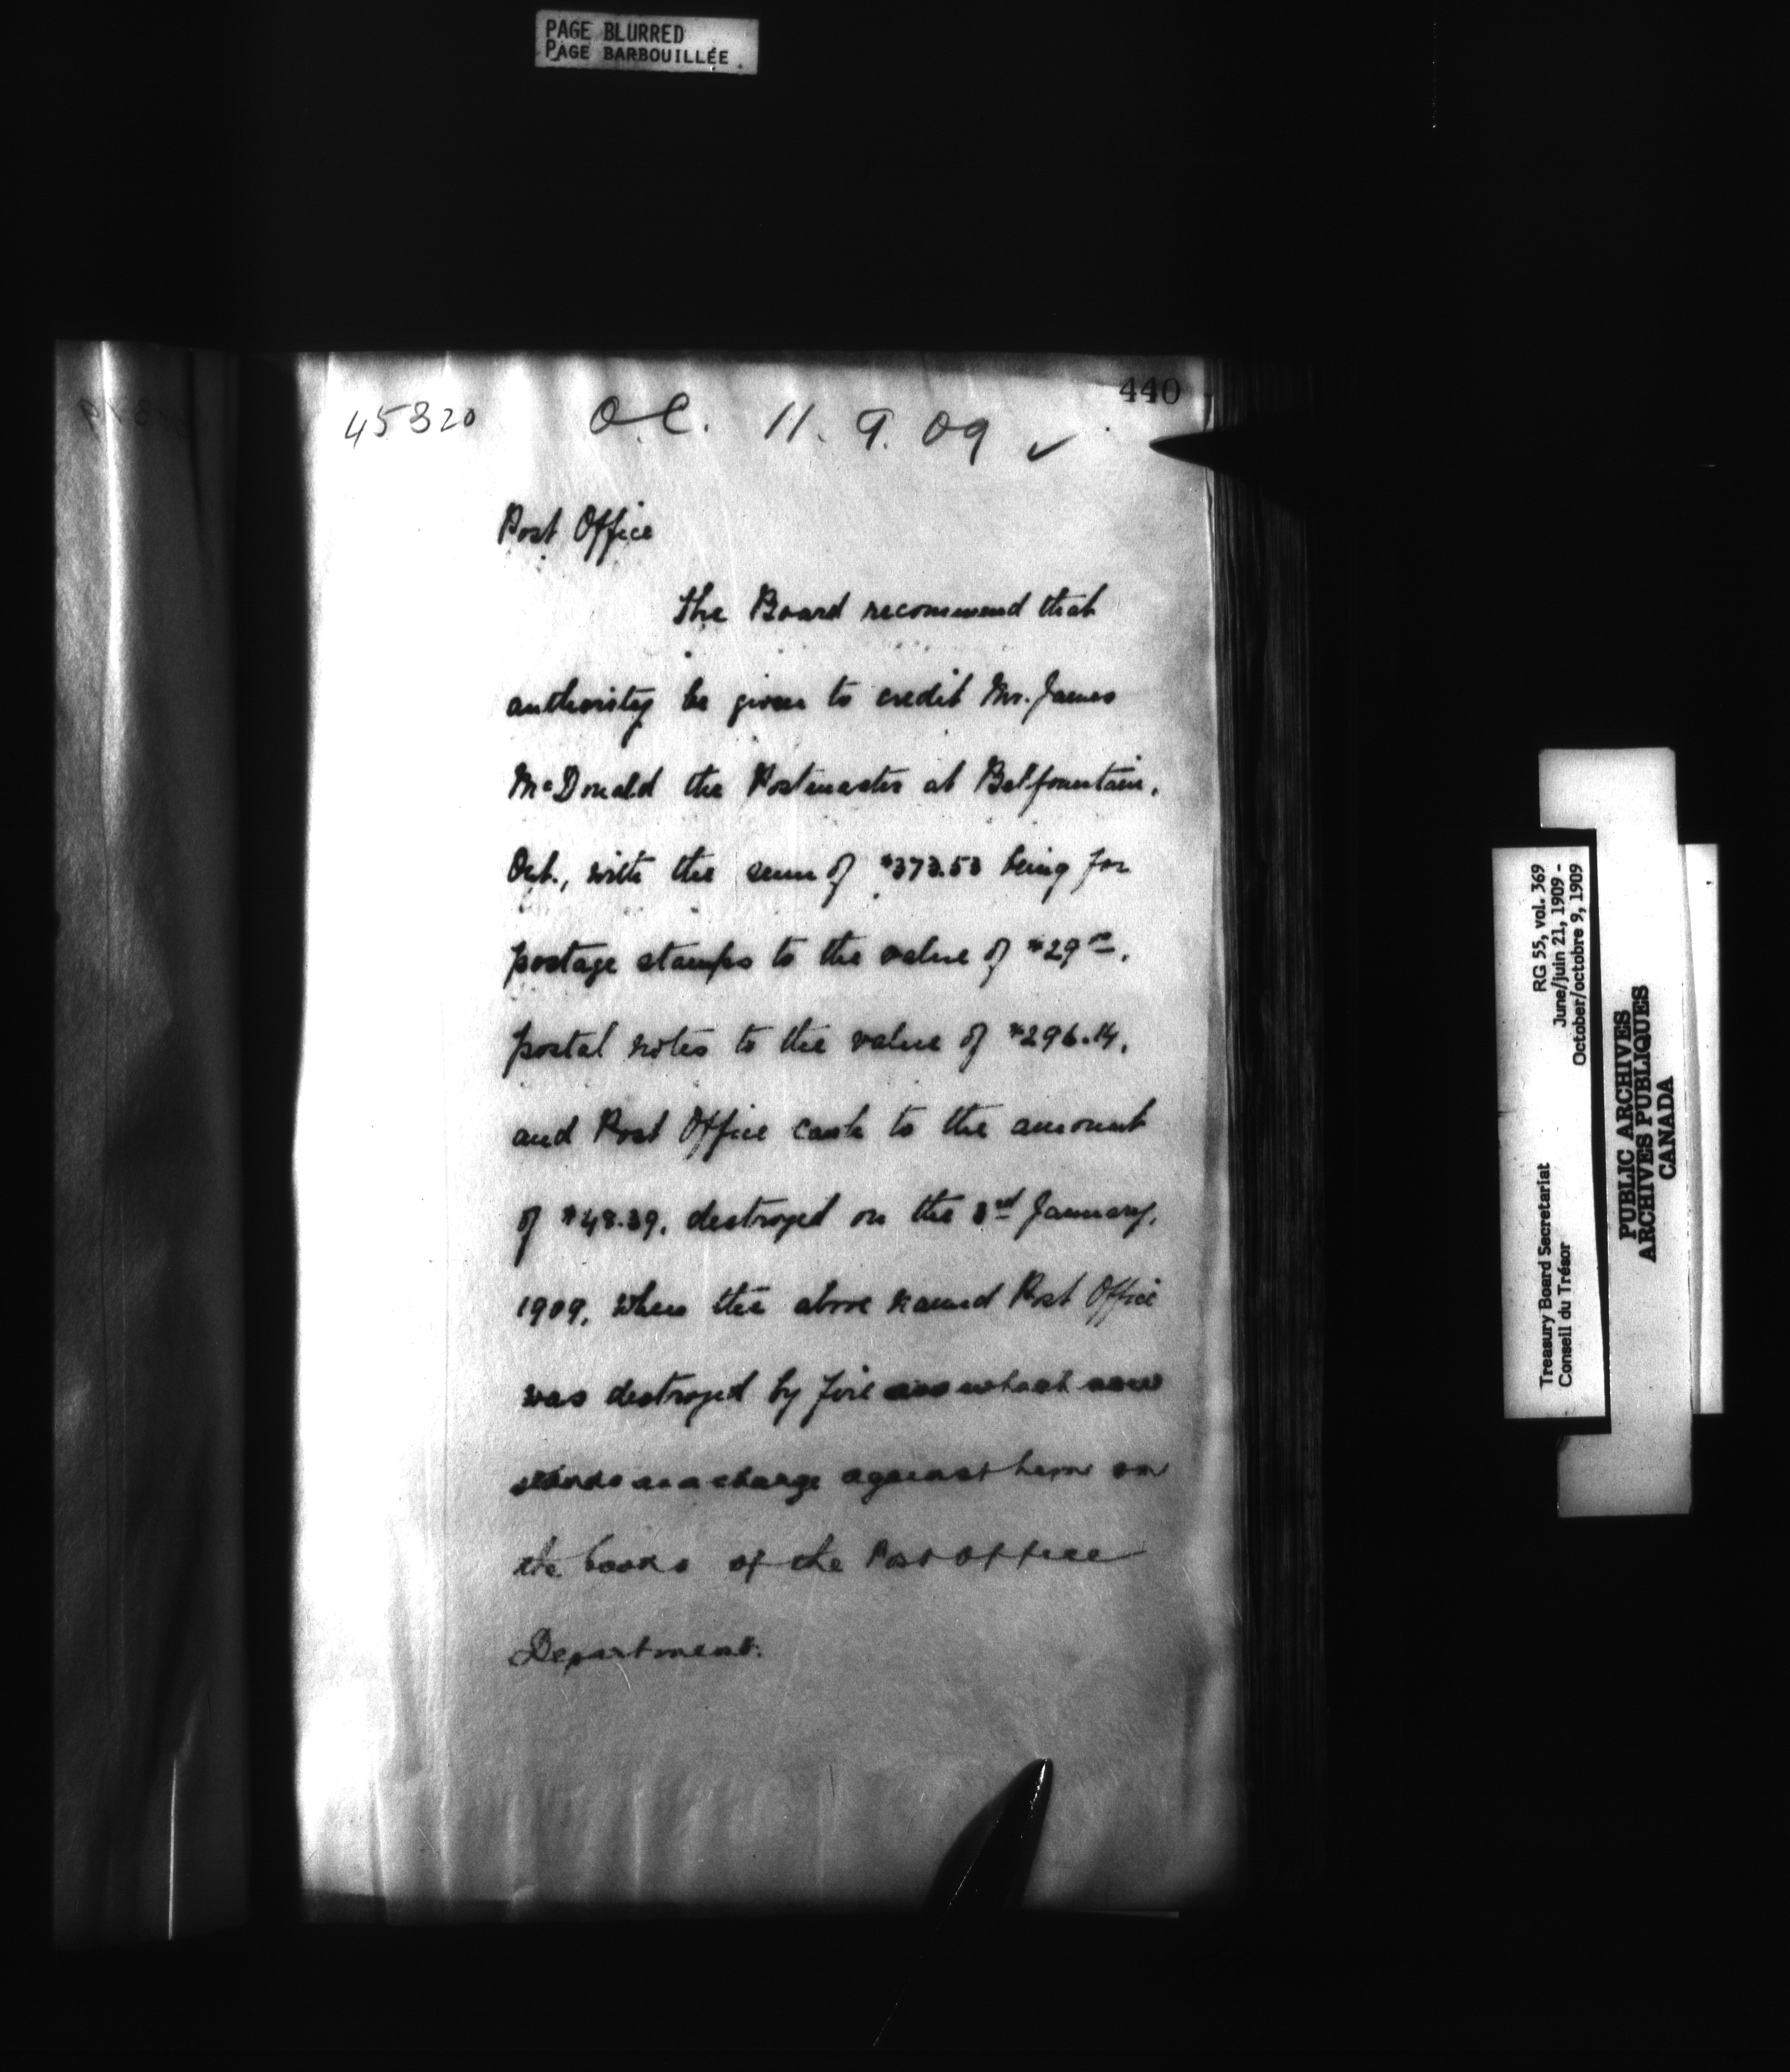 PAGE BLURRED
PAGE BARBOUILLÉE
440
45820 O.C. 11. 9. 09 ✓
Post Office
The Board recommend that
authority be given to credit Mr. James
McDonald the Postmaster at Belfountain,
Ont., with the sum of $373.53 being for
postage stamps to the value of $29.00,
postal notes to the value of $296.14,
and Post Office cash to the amount
of $48.39, destroyed on the 3rd January,
1909, when the above named Post Office
was destroyed by fire and what now
stands as a charge against him on
the books of the Post Office
Department.
Treasury Board Secretariat RG 55, vol. 369
Conseil du Trésor June/juin 21, 1909 -
October/octobre 9, 1909
PUBLIC ARCHIVES
ARCHIVES PUBLIQUES
CANADA